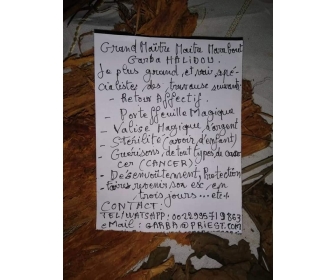 Grand Maître Maitre Marabout
Garba HALIDOU.
Le plus grand, et vrai, spé-
cialistes, des travause suivant:
Retour Affectif.
- Porte ffeuille Magique
- Valise Magique d'argent
- Stérilité (avoir d'enfant)
- Guérisons, de tout types de can
cer (CANCER)
- Désenvoûtement, Protection
faire revenir son ex, en
trois jours... etc
CONTACT:
TEL/WATSHAPP: 0022995719863
eMail: GARBA@PRIEST.COM